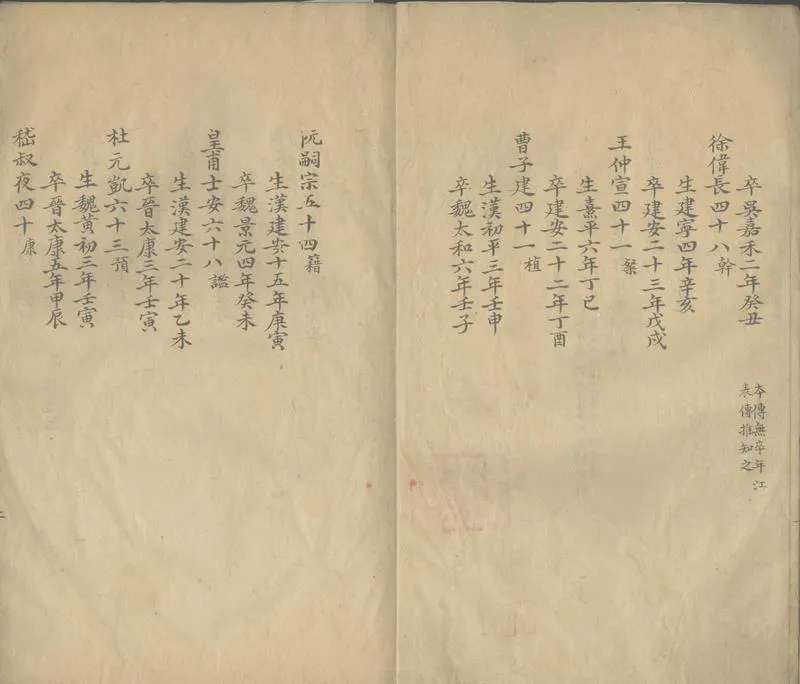 卒吳嘉禾二年癸丑
本傳無卒年江
表傳推知之
徐偉長四十八幹
生建寧四年辛亥
卒建安二十三年戊戌
王仲宣四十一粲
生熹平六年丁巳
卒建安二十二年丁酉
曹子建四十一植
生漢初平三年壬申
卒魏太和六年壬子
阮嗣宗五十四籍
生漢建安十五年庚寅
卒魏景元四年癸未
皇甫士安六十八謐
生漢建安二十年乙未
卒晉太康三年壬寅
杜元凱六十三預
生魏黃初三年壬寅
卒晉太康五年甲辰
嵇叔夜四十康